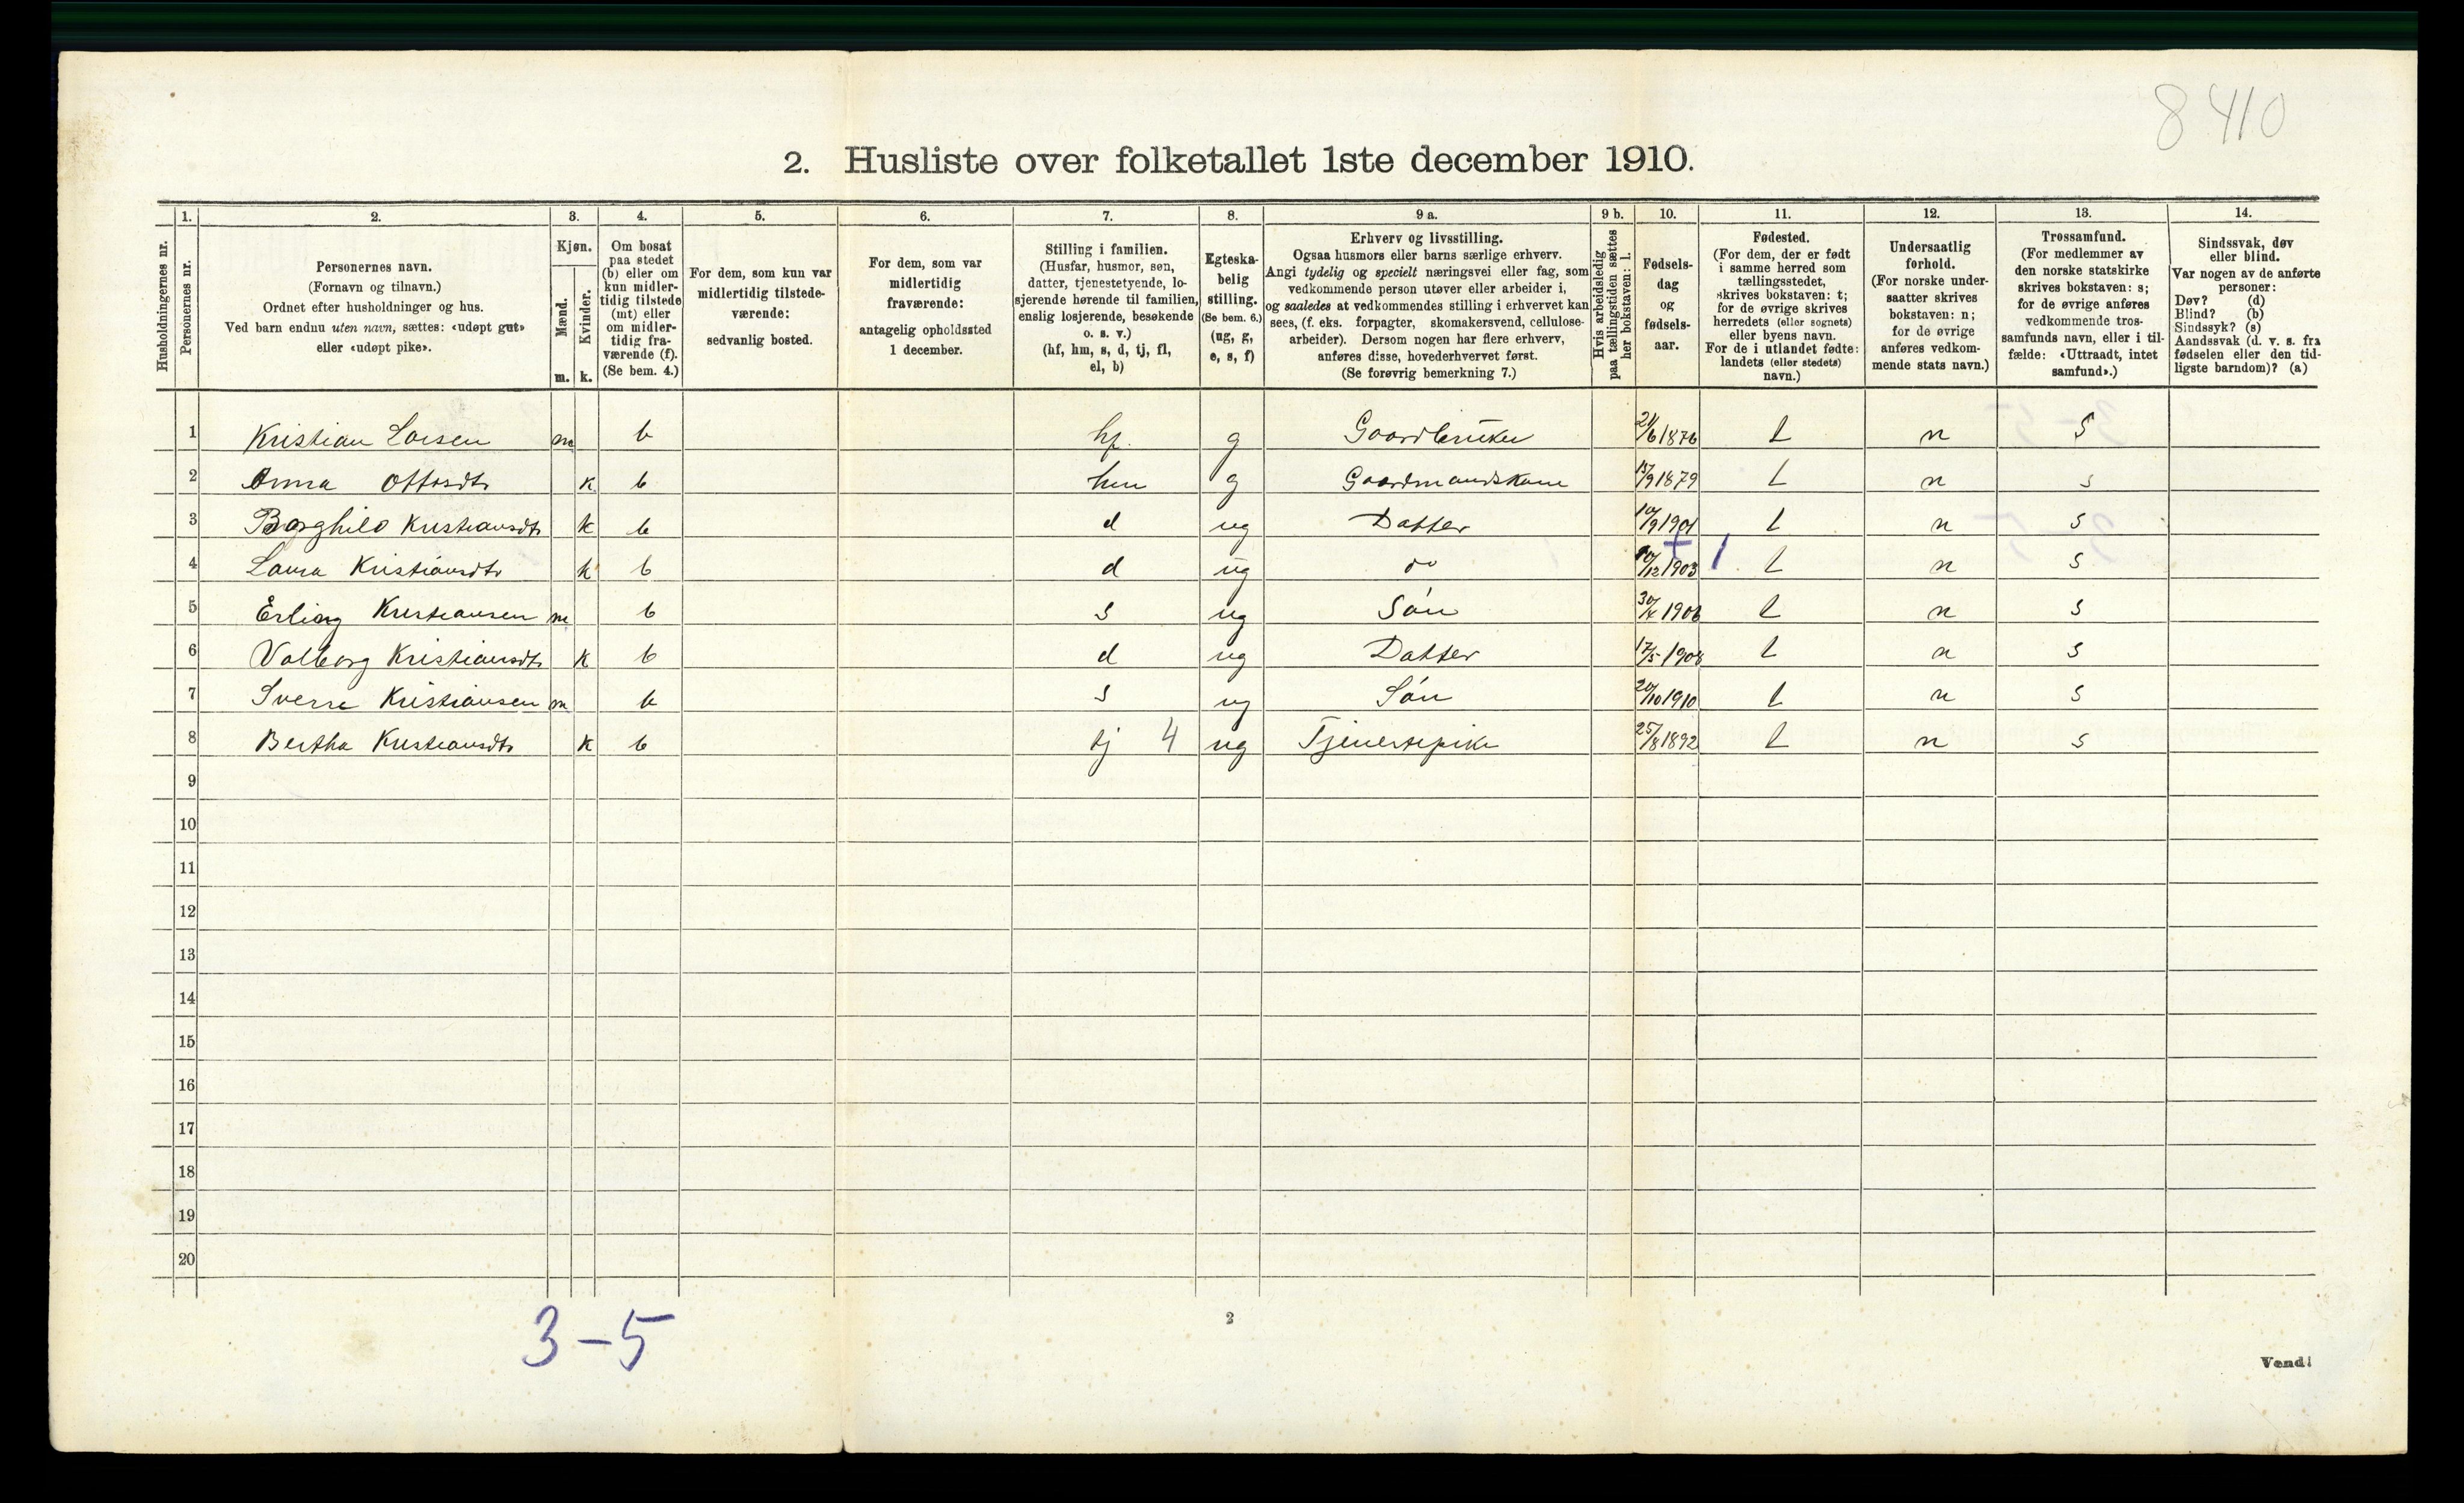 8410
2. Husliste over folketallet 1ste december 1910.
Husholdningernes nr.
1.
Personernes nr.
2.
Personernes navn.
(Fornavn og tilnavn.)
Ordnet efter husholdninger og hus.
Ved barn endnu uten navn, sættes: «udøpt gut»
eller «udøpt pike».
3.
Kjøn.
Mænd.
m.
Kvinder.
k.
4.
Om bosat
paa stedet
(b) eller om
kun midler-
tidig tilstede
(mt) eller
om midler-
tidig fra-
værende (f).
(Se bem. 4.)
5.
For dem, som kun var
midlertidig tilstede-
værende:
sedvanlig bosted.
6.
For dem, som var
midlertidig
fraværende:
antagelig opholdssted
1 december.
7.
Stilling i familien.
(Husfar, husmor, søn,
datter, tjenestetyende, lo-
sjerende hørende til familien,
enslig losjerende, besøkende
o. s. v.)
(hf, hm, s, d, tj, fl,
el, b)
8.
Egteska-
belig
stilling.
(Se bem. 6.)
(ug, g,
e, s, f)
9 a.
Erhverv og livsstilling.
Ogsaa husmors eller barns særlige erhverv.
Angi tydelig og specielt næringsvei eller fag, som
vedkommende person utøver eller arbeider i,
og saaledes at vedkommendes stilling i erhvervet kan
sees, (f. eks. forpagter, skomakersvend, cellulose-
arbeider). Dersom nogen har flere erhverv,
anføres disse, hovederhvervet først.
(Se forøvrig bemerkning 7.)
9 b.
Hvis arbeidsledig
paa tællingstiden sættes
her bokstaven: l.
10.
Fødsels-
dag
og
fødsels-
aar.
11.
Fødested.
(For dem, der er født
i samme herred som
tællingsstedet,
skrives bokstaven: t;
for de øvrige skrives
herredets (eller sognets)
eller byens navn.
For de i utlandet fødte:
landets (eller stedets)
navn.)
12.
Undersaatlig
forhold.
(For norske under-
saatter skrives
bokstaven: n;
for de øvrige
anføres vedkom-
mende stats navn.)
13.
Trossamfund.
(For medlemmer av
den norske statskirke
skrives bokstaven: s;
for de øvrige anføres
vedkommende tros-
samfunds navn, eller i til-
fælde: «Uttraadt, intet
samfund».)
14.
Sindssvak, døv
eller blind.
Var nogen av de anførte
personer:
Døv? (d)
Blind? (b)
Sindssyk? (s)
Aandssvak (d. v. s. fra
fødselen eller den tid-
ligste barndom)? (a)
1 Kristian Larsen m b hf. g Gaardbruker 24/6 1876 t n S
2 Anna Ottosdtr k b hm g Gaardmandskone 15/9 1879 t n s
3 Borghild Kristiansdtr k b d ug Datter 10/9 1901 t n s
4 Laura Kristiansdtr k b d ug do 10/12 1903 t n s
5 Erling Kristiansen m b s ug Søn 30/4 1906 t n s
6 Valborg Kristiansdtr k b d ug Datter 17/5 1908 t n s
7 Sverre Kristiansen m b s ug Søn 20/10 1910 t n s
8 Bertha Kristiansdtr k b tj 4 ug Tjenestepike 25/8 1892 t n s
9
10
11
12
13
14
15
16
17
18
19
20
3-5
2
Vend!